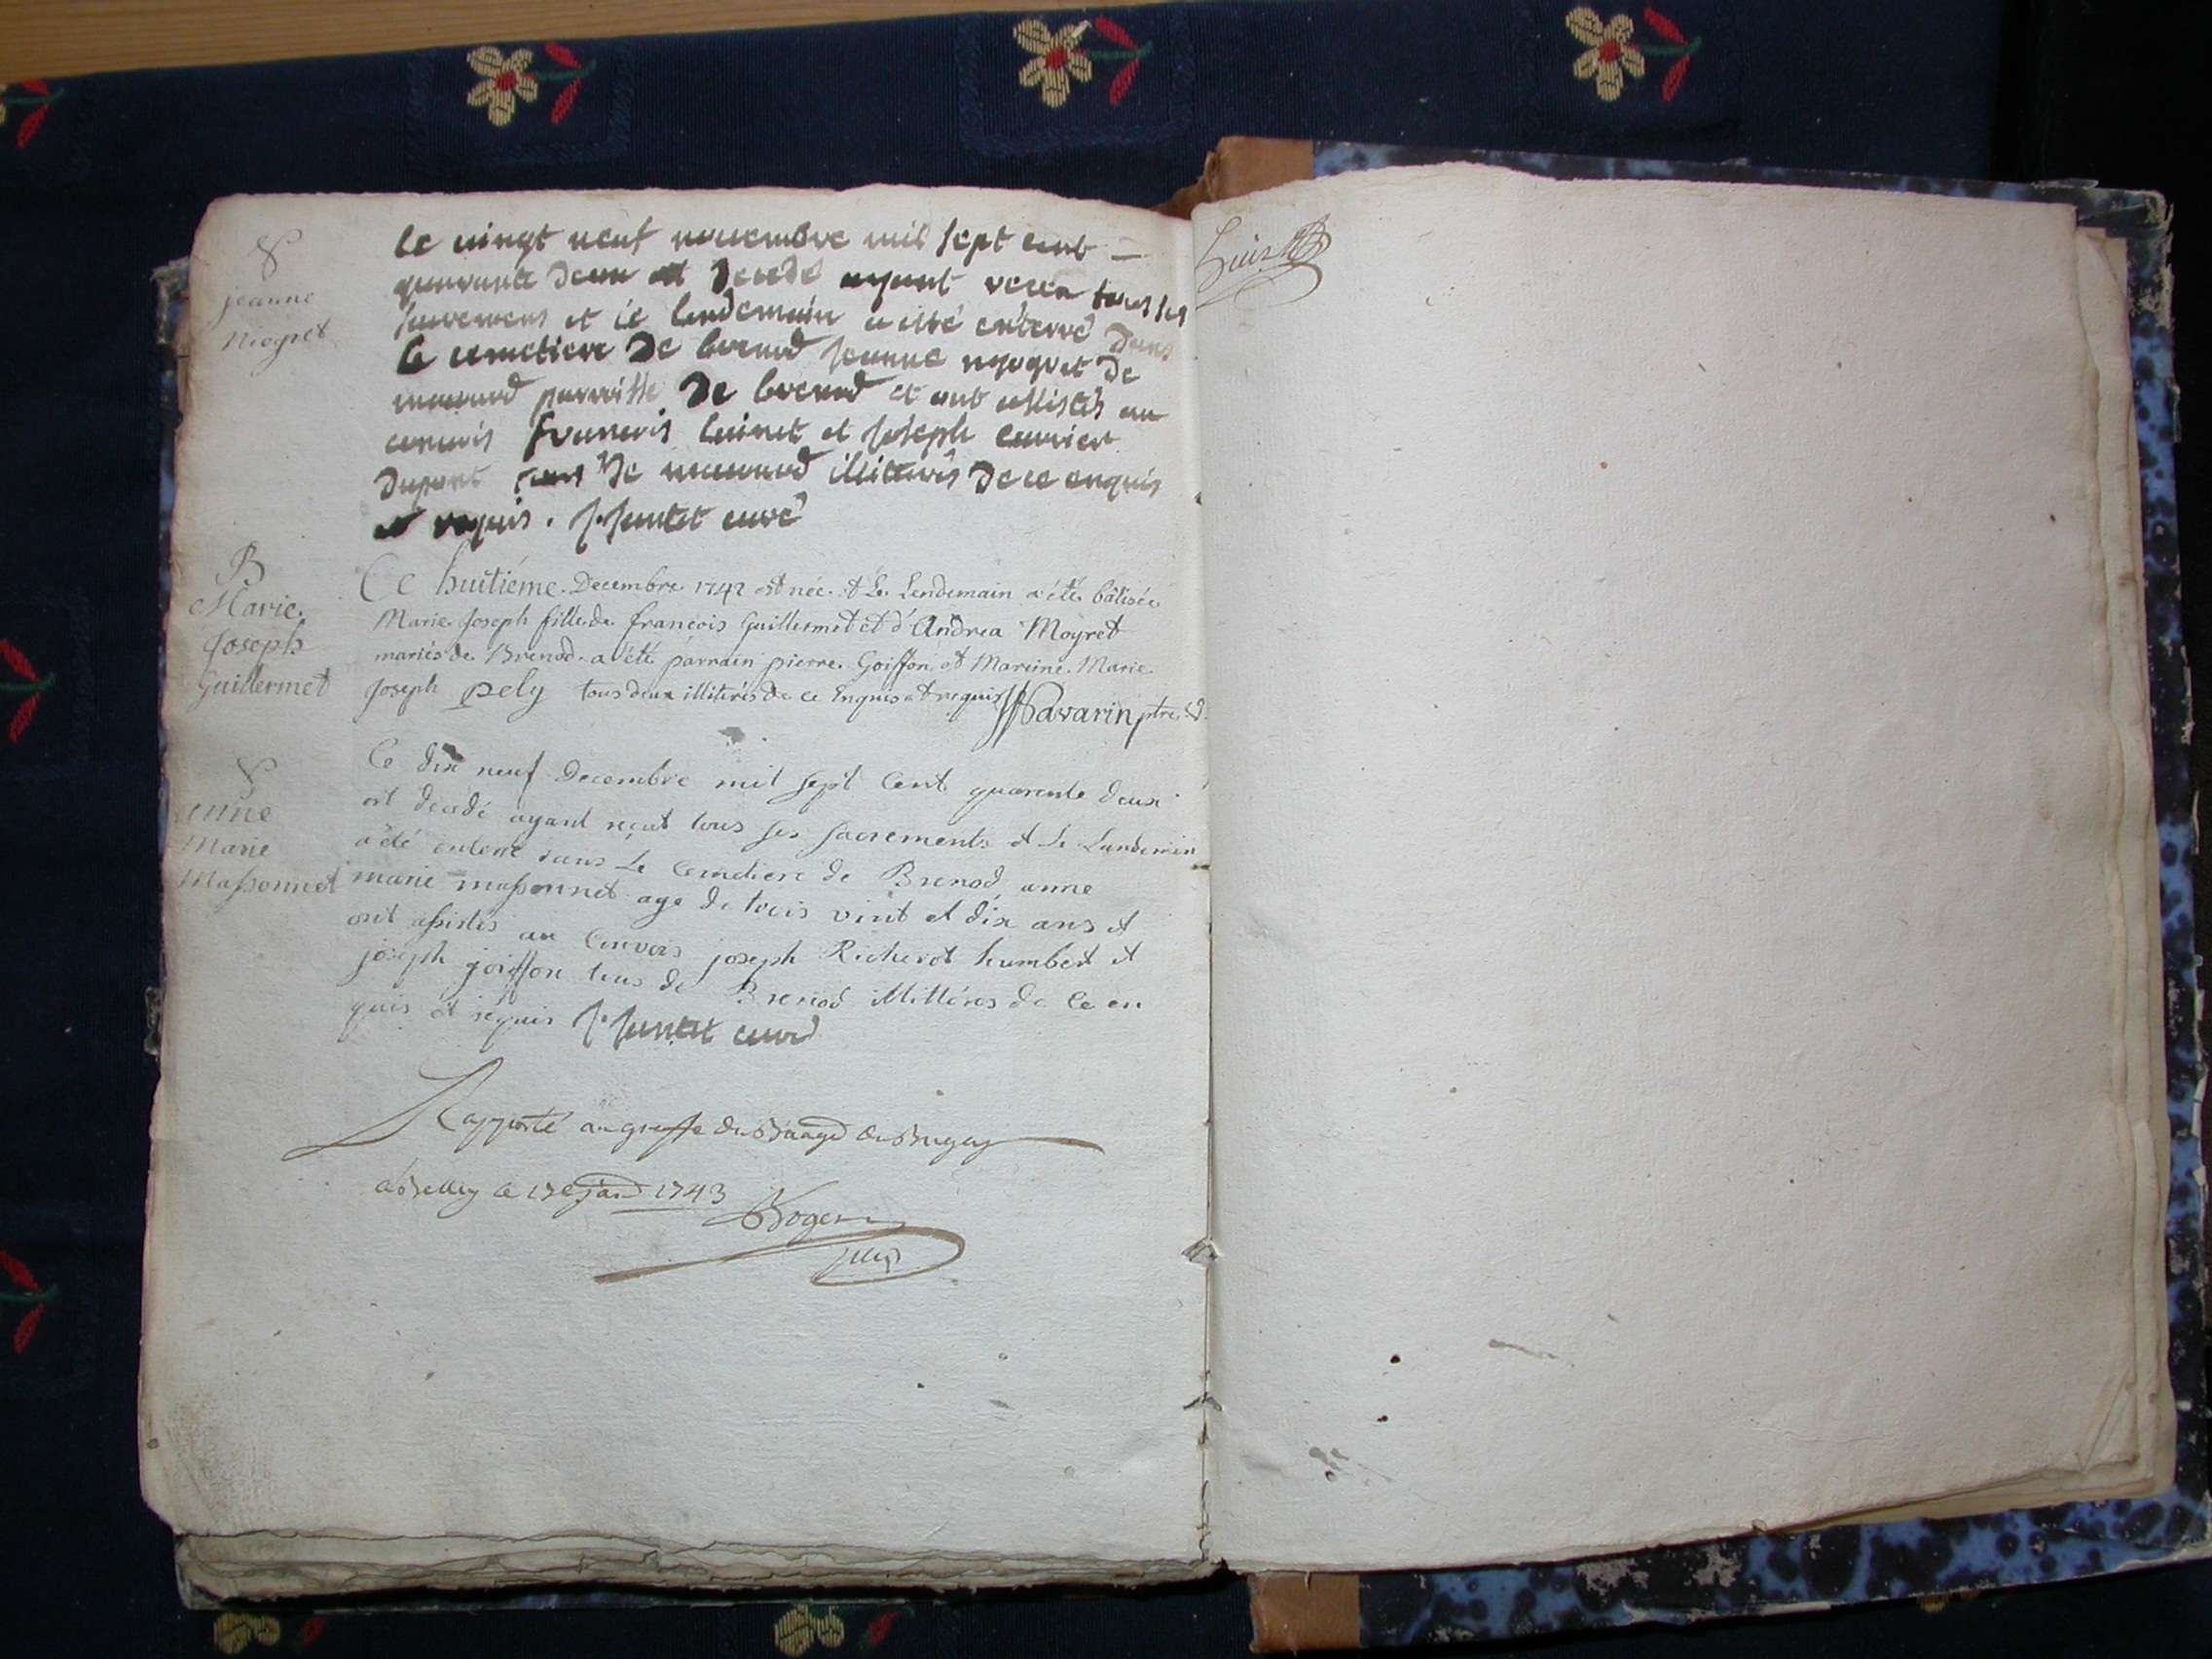 S
jeanne
Niogret
le vingt neuf novembre mil sept cent
quarante deux est decedé ayant receu tous ses
sacremens et le lendemain a esté enterré dans
le cimetiere de brenod jeanne nyogret de
macund parroisse de brenod et ont assistés au
convois francois luinet et joseph carrier
dupont tous de macund illiterés de ce enquis
et requis. curé
B
Marie
Joseph
Guillermet
Ce huitiéme Decembre 1742 est née et Le Lendemain a été bâtisée
Marie Joseph fille de francois Guillermet et d'Andrea Moyret
mariés de Brenod a été parrain pierre Goiffon et Mareine Marie
Joseph pely tous deux illiterés de ce Enquis et requis Savarin ptre
S
anne
Marie
Massonnet
Ce dix neuf decembre mil sept Cent quarente deux
est decedé ayant reçut tous ses sacrements et le Landemin
a été enterré dans Le Cemetiere de Brenod anne
marie massonnet age de trois vint et dix ans et
ont assistés au Convois joseph Richerot humbert et
joseph goiffon tous de Brenod illittérés de Ce en
quis et requis curé
Rapporté au greffe du Baage de Bugey
a Belley le 17e janv 1743
Roger